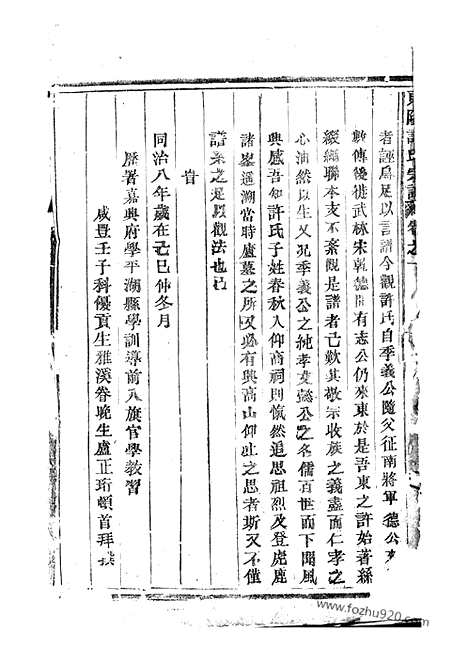 東陽許氏宗譜卷之一
者誣爲足以言譜今觀許氏自季義公隨父征南將軍 德公
數傳後徙武林宋乾德間有志公仍來東於是吾東之許始著緜
綴繩聯本支不紊觀是譜者已歎其敬宗收族之義盡而仁孝之
心油然以生又况季義公之純孝 懿公之名儒百世而下聞風
興感吾知許氏子姓春秋入仰商祠則愾然追思祖烈及登虎鹿
諸峯遥溯當時廬墓之所又必有興高山仰止之思者斯又不僅
譜系之足以觀法也已
旹
同治八年歲在己巳仲冬月
歷署嘉興府學平湖縣學訓導前八旗官學教習
咸豊壬子科優貢生雅溪眷晚生盧正珩頓首拜撰
www.fozhu920.com